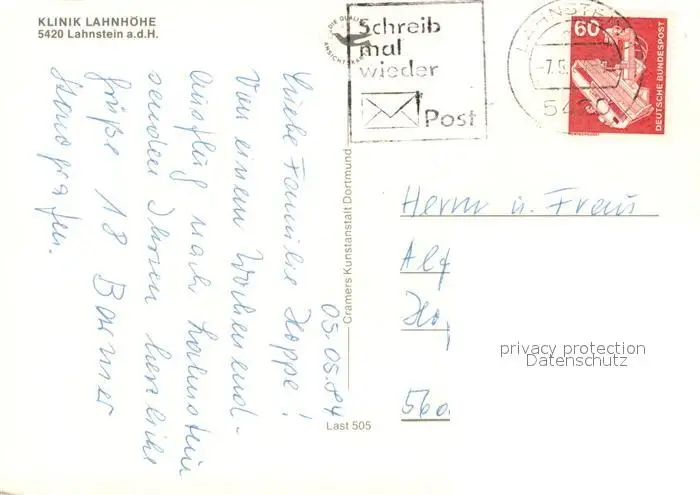 KLINIK LAHNHÖHE
5420 Lahnstein a.d.H.
DIE QUALITÄTS
ANSICHTSKARTE
Schreib
mal
wieder
Post
LAHNSTEIN
-7.5.
5420
60
DEUTSCHE BUNDESPOST
05.05.84
Liebe Familie Hoppe!
Von einem Wochenend-
ausflug nach Lahnstein
senden Ihnen herzliche
Grüße 18 Barmer
Stenografen.
Cramers Kunstanstalt Dortmund
Last 505
Herrn u. Frau
Alf
Ho
560
privacy protection
Datenschutz